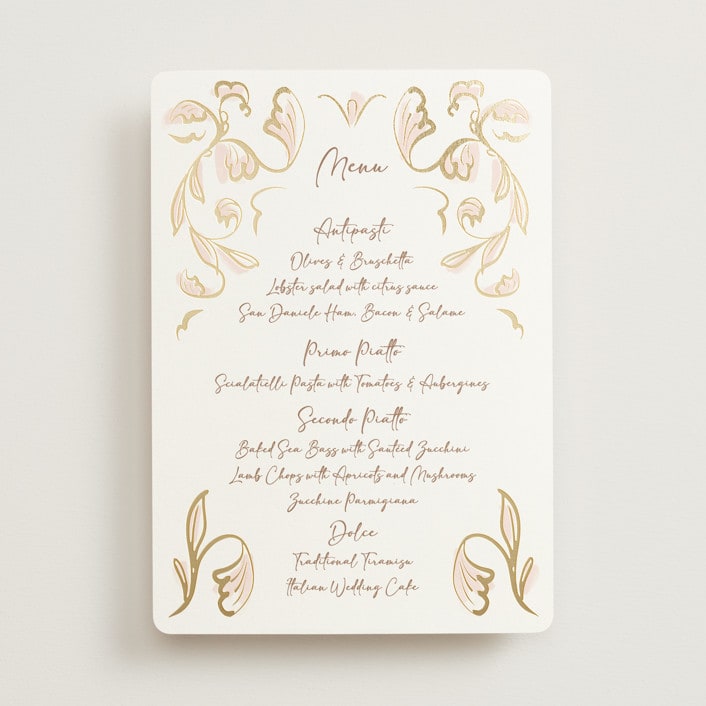 Menu
Antipasti
Olives & Bruschetta
Lobster salad with citrus sauce
San Daniele Ham, Bacon & Salame
Primo Piatto
Scialatielli Pasta with Tomatoes & Aubergines
Secondo Piatto
Baked Sea Bass with Sautéed Zucchini
Lamb Chops with Apricots and Mushrooms
Zucchine Parmigiana
Dolce
Traditional Tiramisu
Italian Wedding Cake